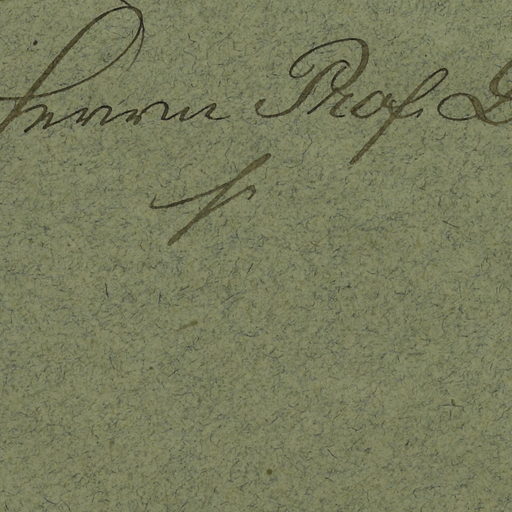 Herrn Prof. D